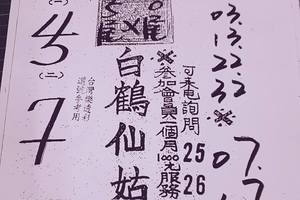 03.
13.
22.
32
07.
可來電詢問
25
26
※參加會員一個月1000元服務
白鶴仙姑
尾 尾
(一)
45
(二)
7
台灣樂透彩
選號參考用